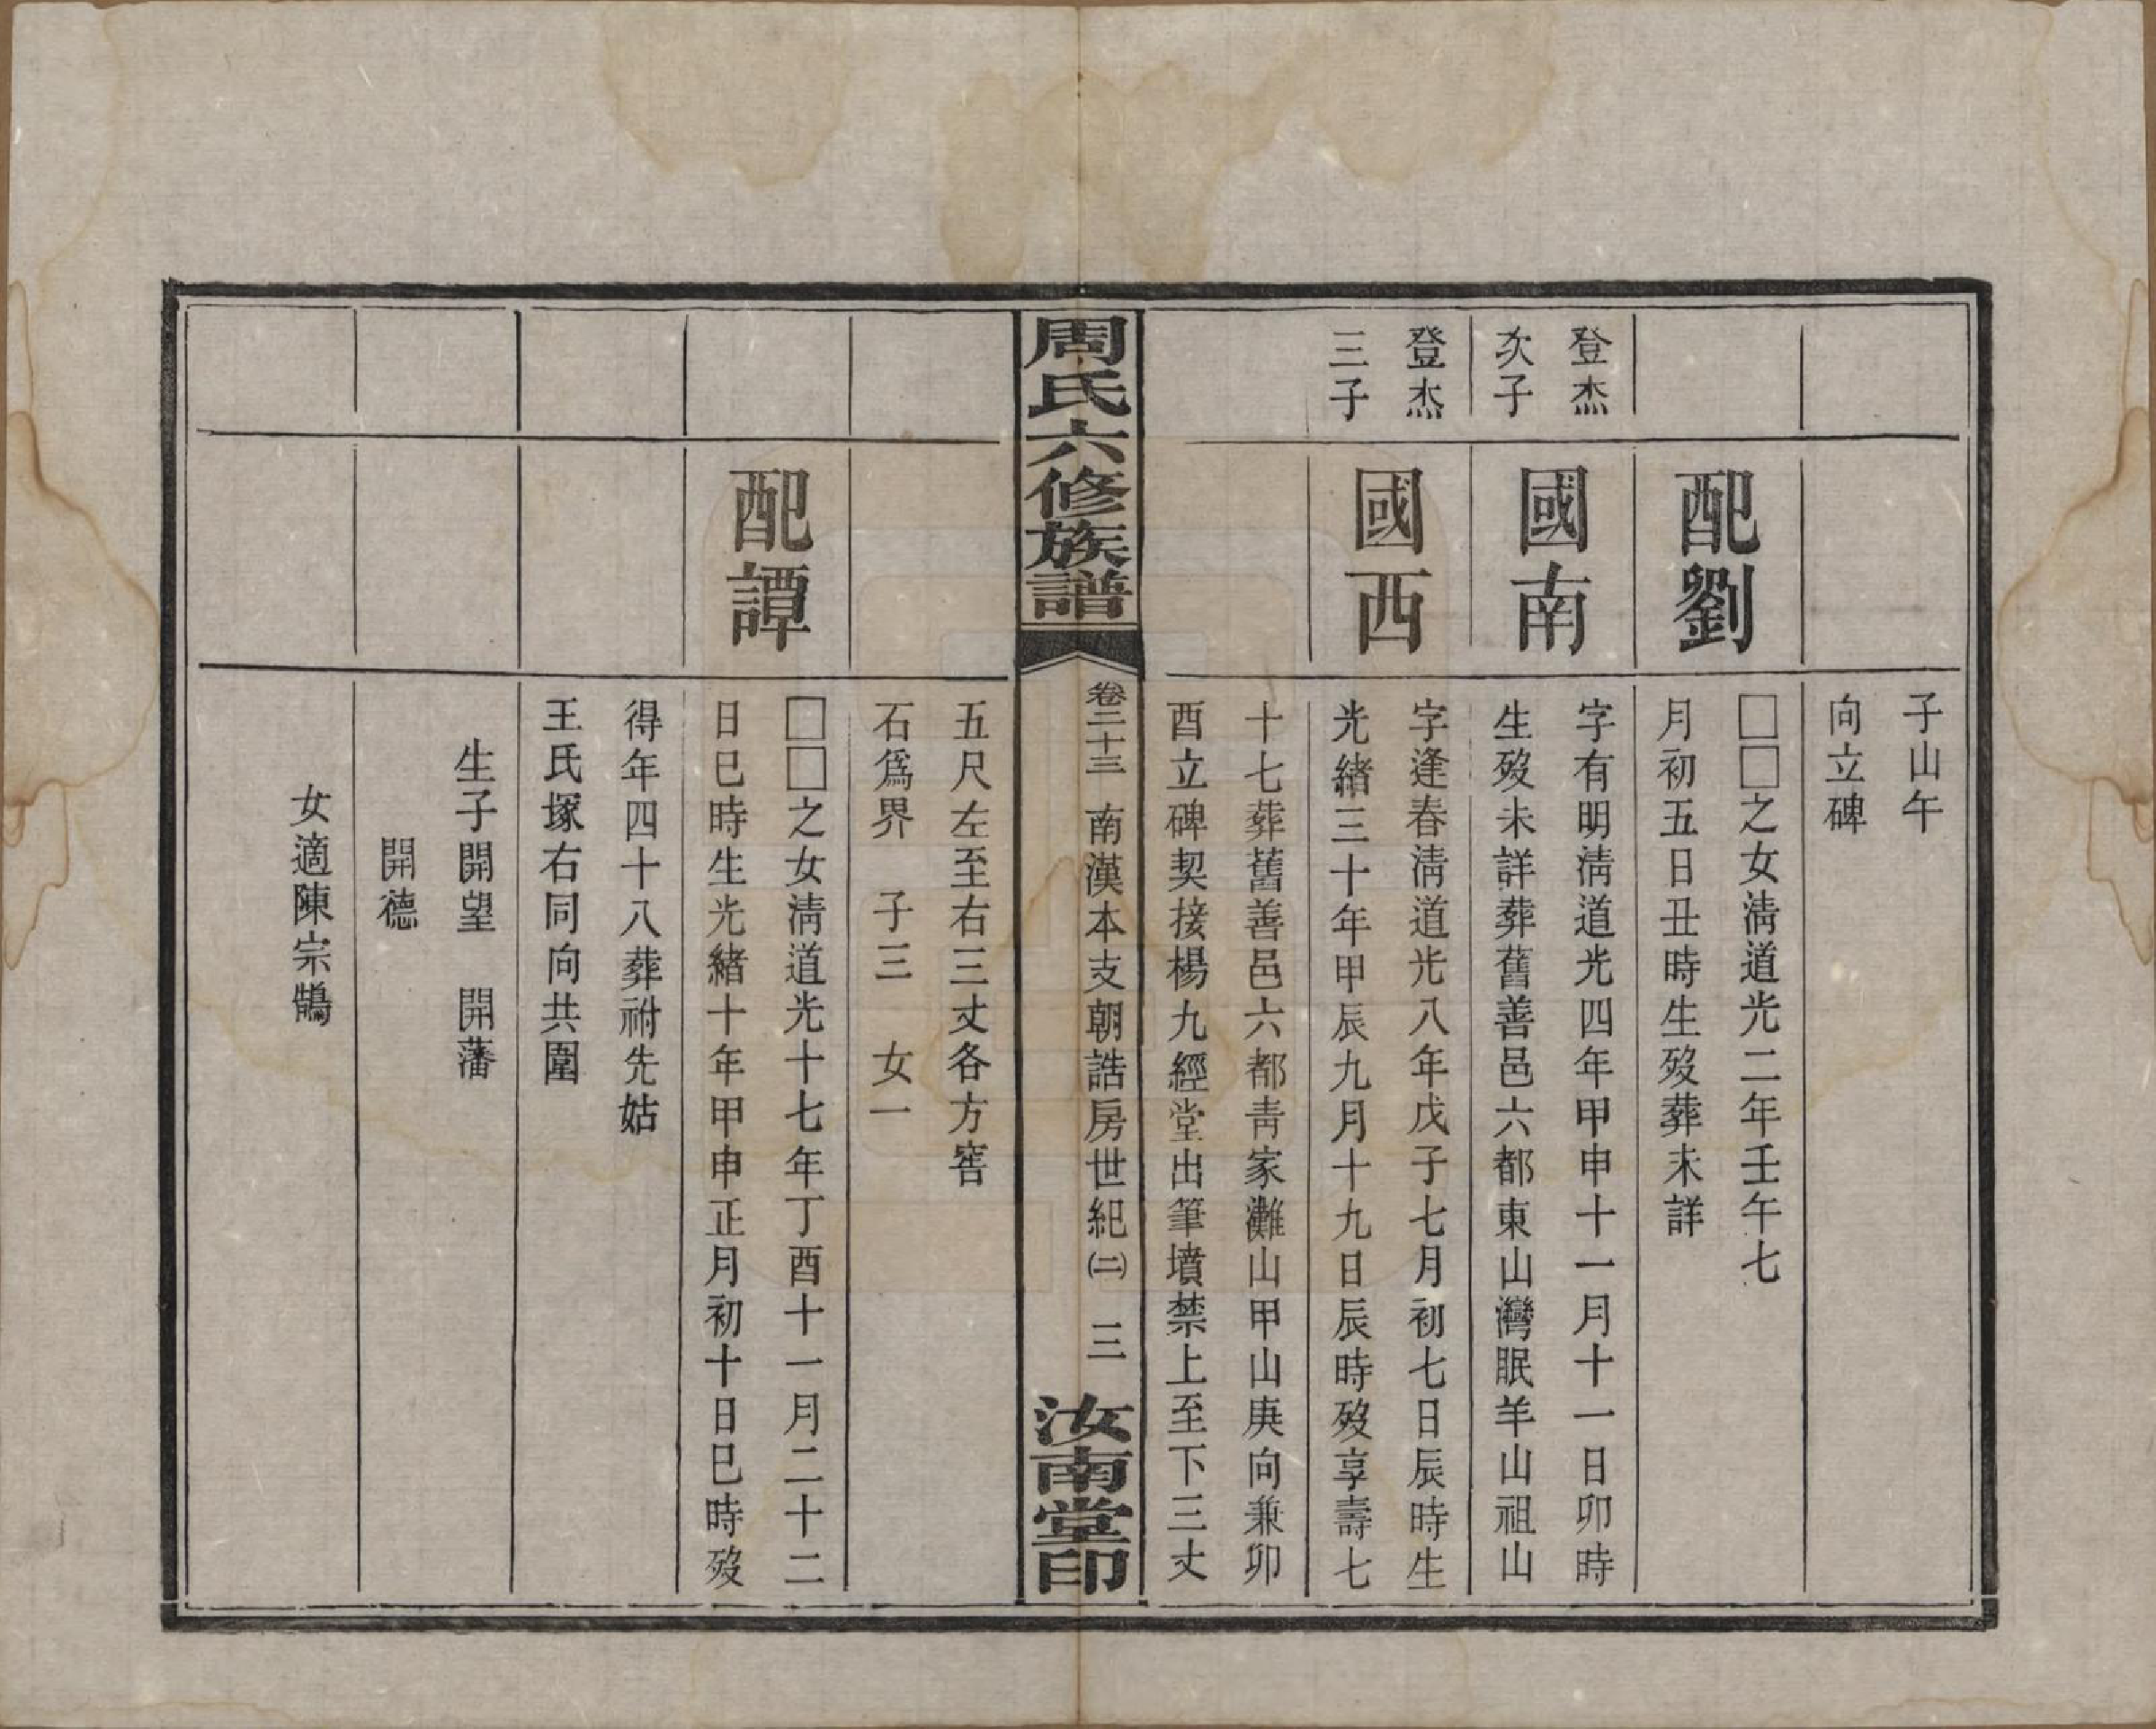 子山午
向立碑
配劉
□□之女淸道光二年壬午七
月初五日丑時生歿葬未詳
登杰
次子
國南
字有明淸道光四年甲申十一月十一日卯時
生歿未詳葬舊善邑六都東山灣眠羊山祖山
登杰
三子
國西
字逢春淸道光八年戊子七月初七日辰時生
光緖三十年甲辰九月十九日辰時歿享壽七
十七葬舊善邑六都靑家灘山甲山庚向兼卯
酉立碑契接楊九經堂出筆墳禁上至下三丈
周氏六修族譜
卷二十三 南漢本支朝誥房世紀㈡ 三
汝南堂印
五尺左至右三丈各方窖
石爲界 子三 女一
配譚
□□之女淸道光十七年丁酉十一月二十二
日巳時生光緖十年甲申正月初十日巳時歿
得年四十八葬祔先姑
王氏塚右同向共圍
生子開望 開藩
開德
女適陳宗鵠